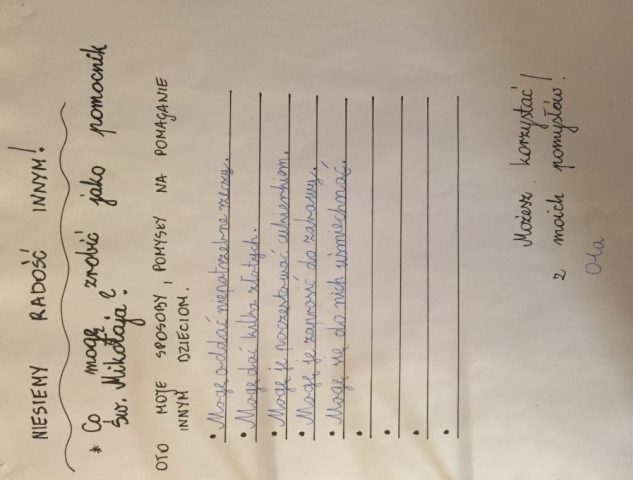 NIESIEMY RADOŚĆ INNYM!
* Co mogę zrobić jako pomocnik
św. Mikołaja?
OTO MOJE SPOSOBY, POMYSŁY NA POMAGANIE
INNYM DZIECIOM.
• Mogę oddać niepotrzebne rzeczy.
• Mogę dać kilka złotych.
• Mogę je poczęstować cukierkiem.
• Mogę je zaprosić do zabawy.
• Mogę się do nich uśmiechnąć.
•
•
•
•
Możesz korzystać
z moich pomysłów!
Ola